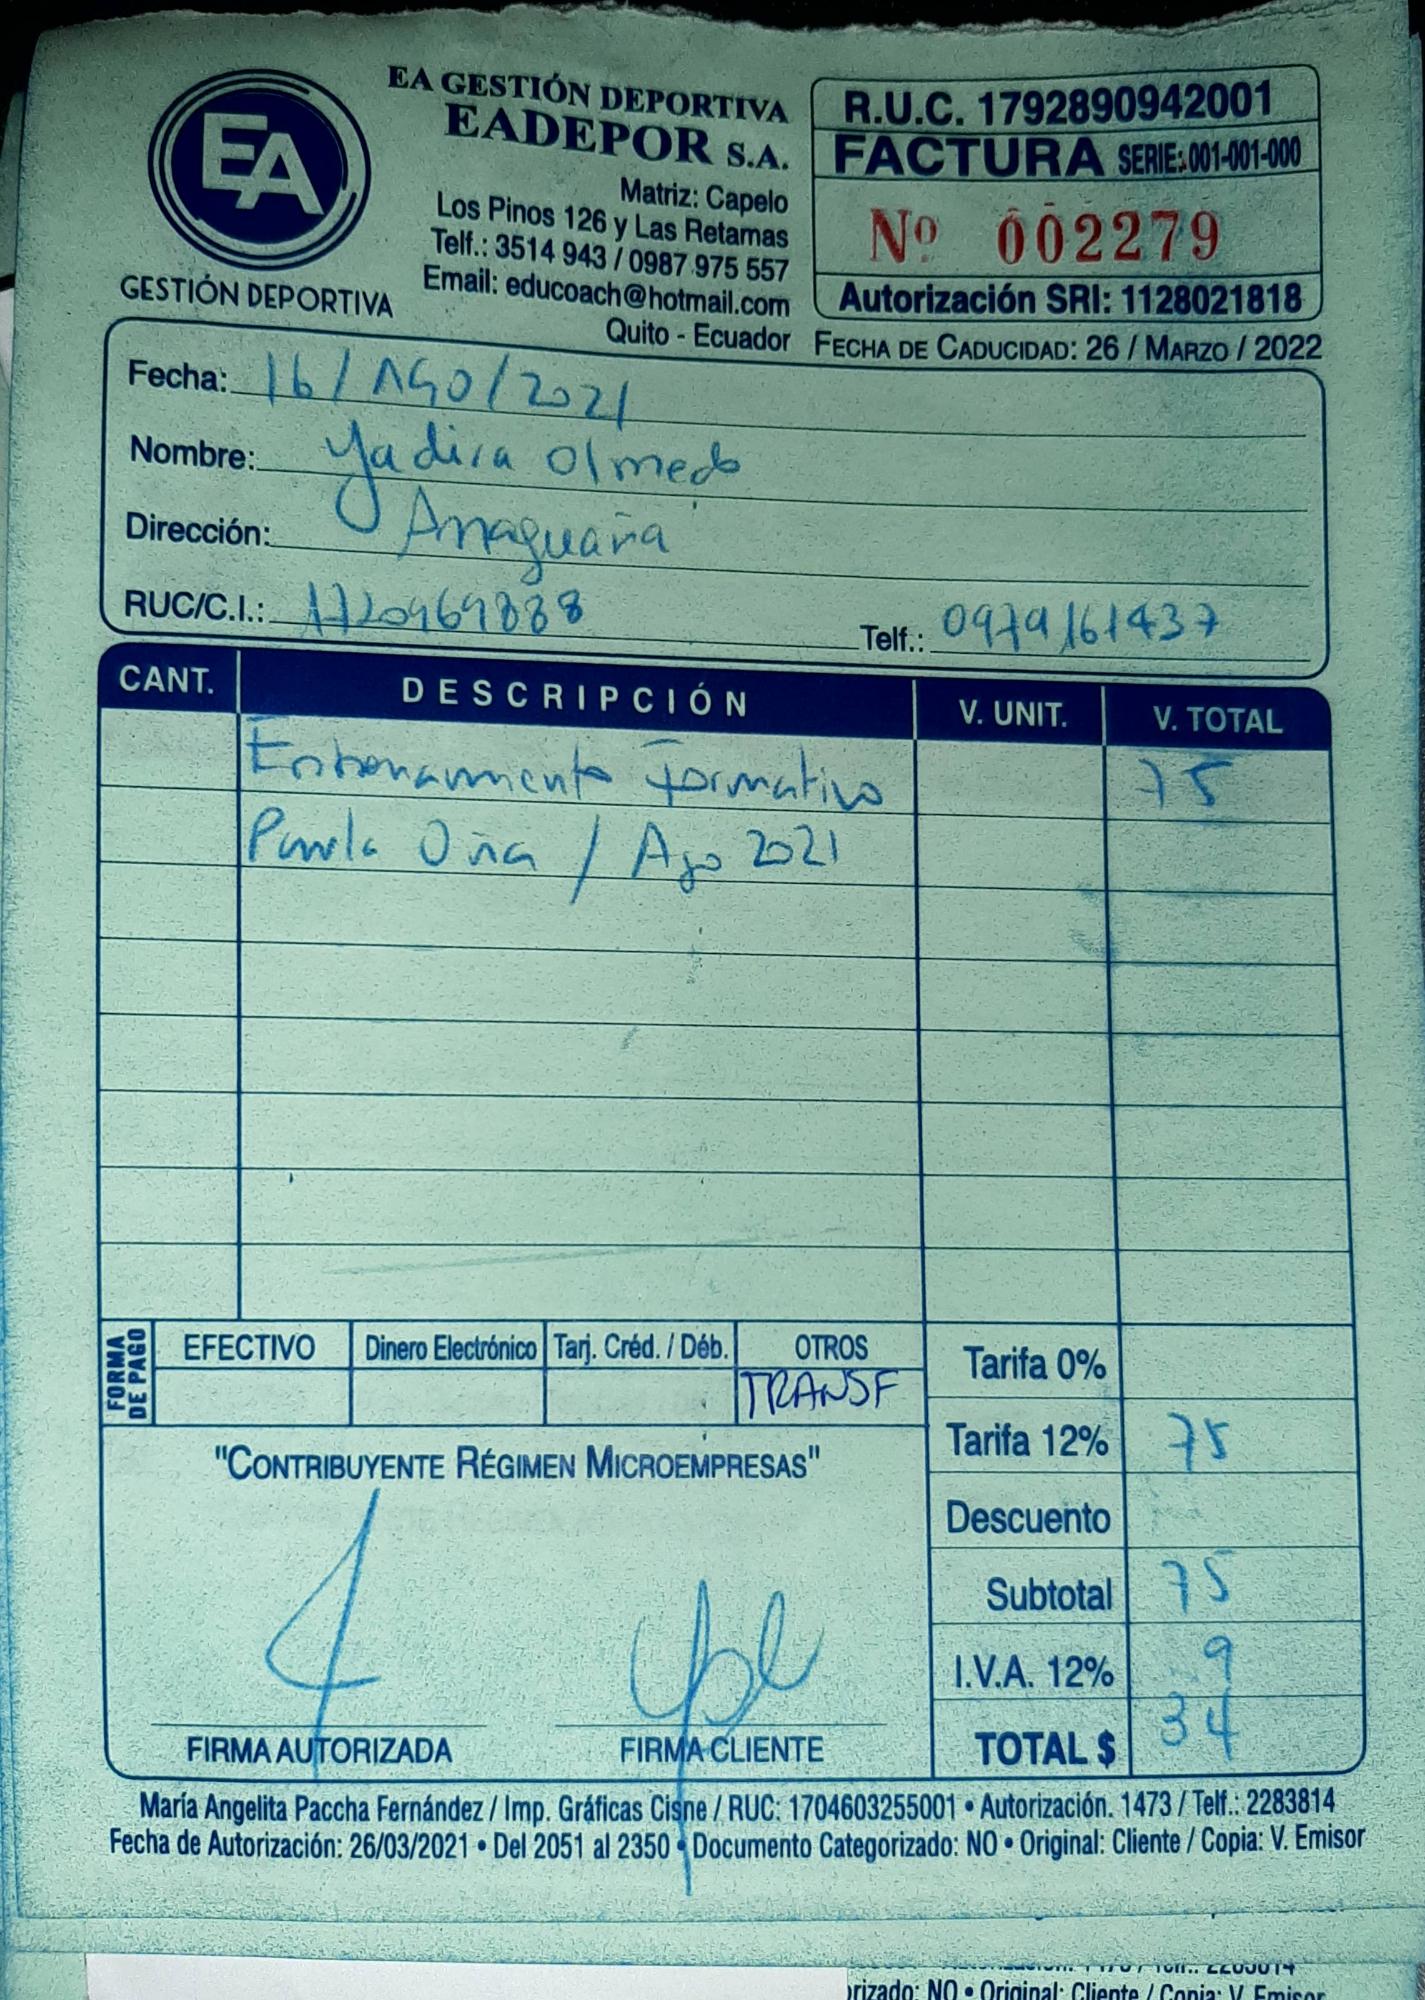 EA
GESTIÓN DEPORTIVA
EA GESTIÓN DEPORTIVA
EADEPOR S.A.
Matriz: Capelo
Los Pinos 126 y Las Retamas
Telf.: 3514 943 / 0987 975 557
Email: educoach@hotmail.com
Quito - Ecuador
R.U.C. 1792890942001
FACTURA SERIE: 001-001-000
Nº 002279
Autorización SRI: 1128021818
FECHA DE CADUCIDAD: 26 / MARZO / 2022
Fecha: 16/AGO/2021
Nombre: Yadira Olmedo
Dirección:
RUC/C.I.: 1720969888 Telf.: 0979161437
CANT. DESCRIPCIÓN V. UNIT. V. TOTAL
Entrenamiento Formativo 75
Paula Oña / Ago 2021
FORMA DE PAGO
EFECTIVO Dinero Electrónico Tarj. Créd. / Déb. OTROS
TRANSF
Tarifa 0%
Tarifa 12% 75
Descuento
Subtotal 75
I.V.A. 12% 9
TOTAL $ 34
"CONTRIBUYENTE RÉGIMEN MICROEMPRESAS"
FIRMA AUTORIZADA FIRMA CLIENTE
María Angelita Paccha Fernández / Imp. Gráficas Cisne / RUC: 1704603255001 • Autorización. 1473 / Telf.: 2283814
Fecha de Autorización: 26/03/2021 • Del 2051 al 2350 • Documento Categorizado: NO • Original: Cliente / Copia: V. Emisor
NO • Original: Cliente / Copia: V. Emisor